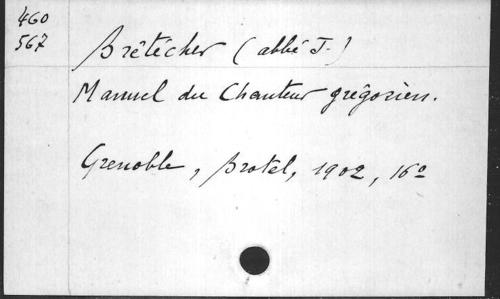 460
567
Brêtécher (abbé J.)
Manuel du Chanteur grégorien.
Grenoble, Brotel, 1902, 16º